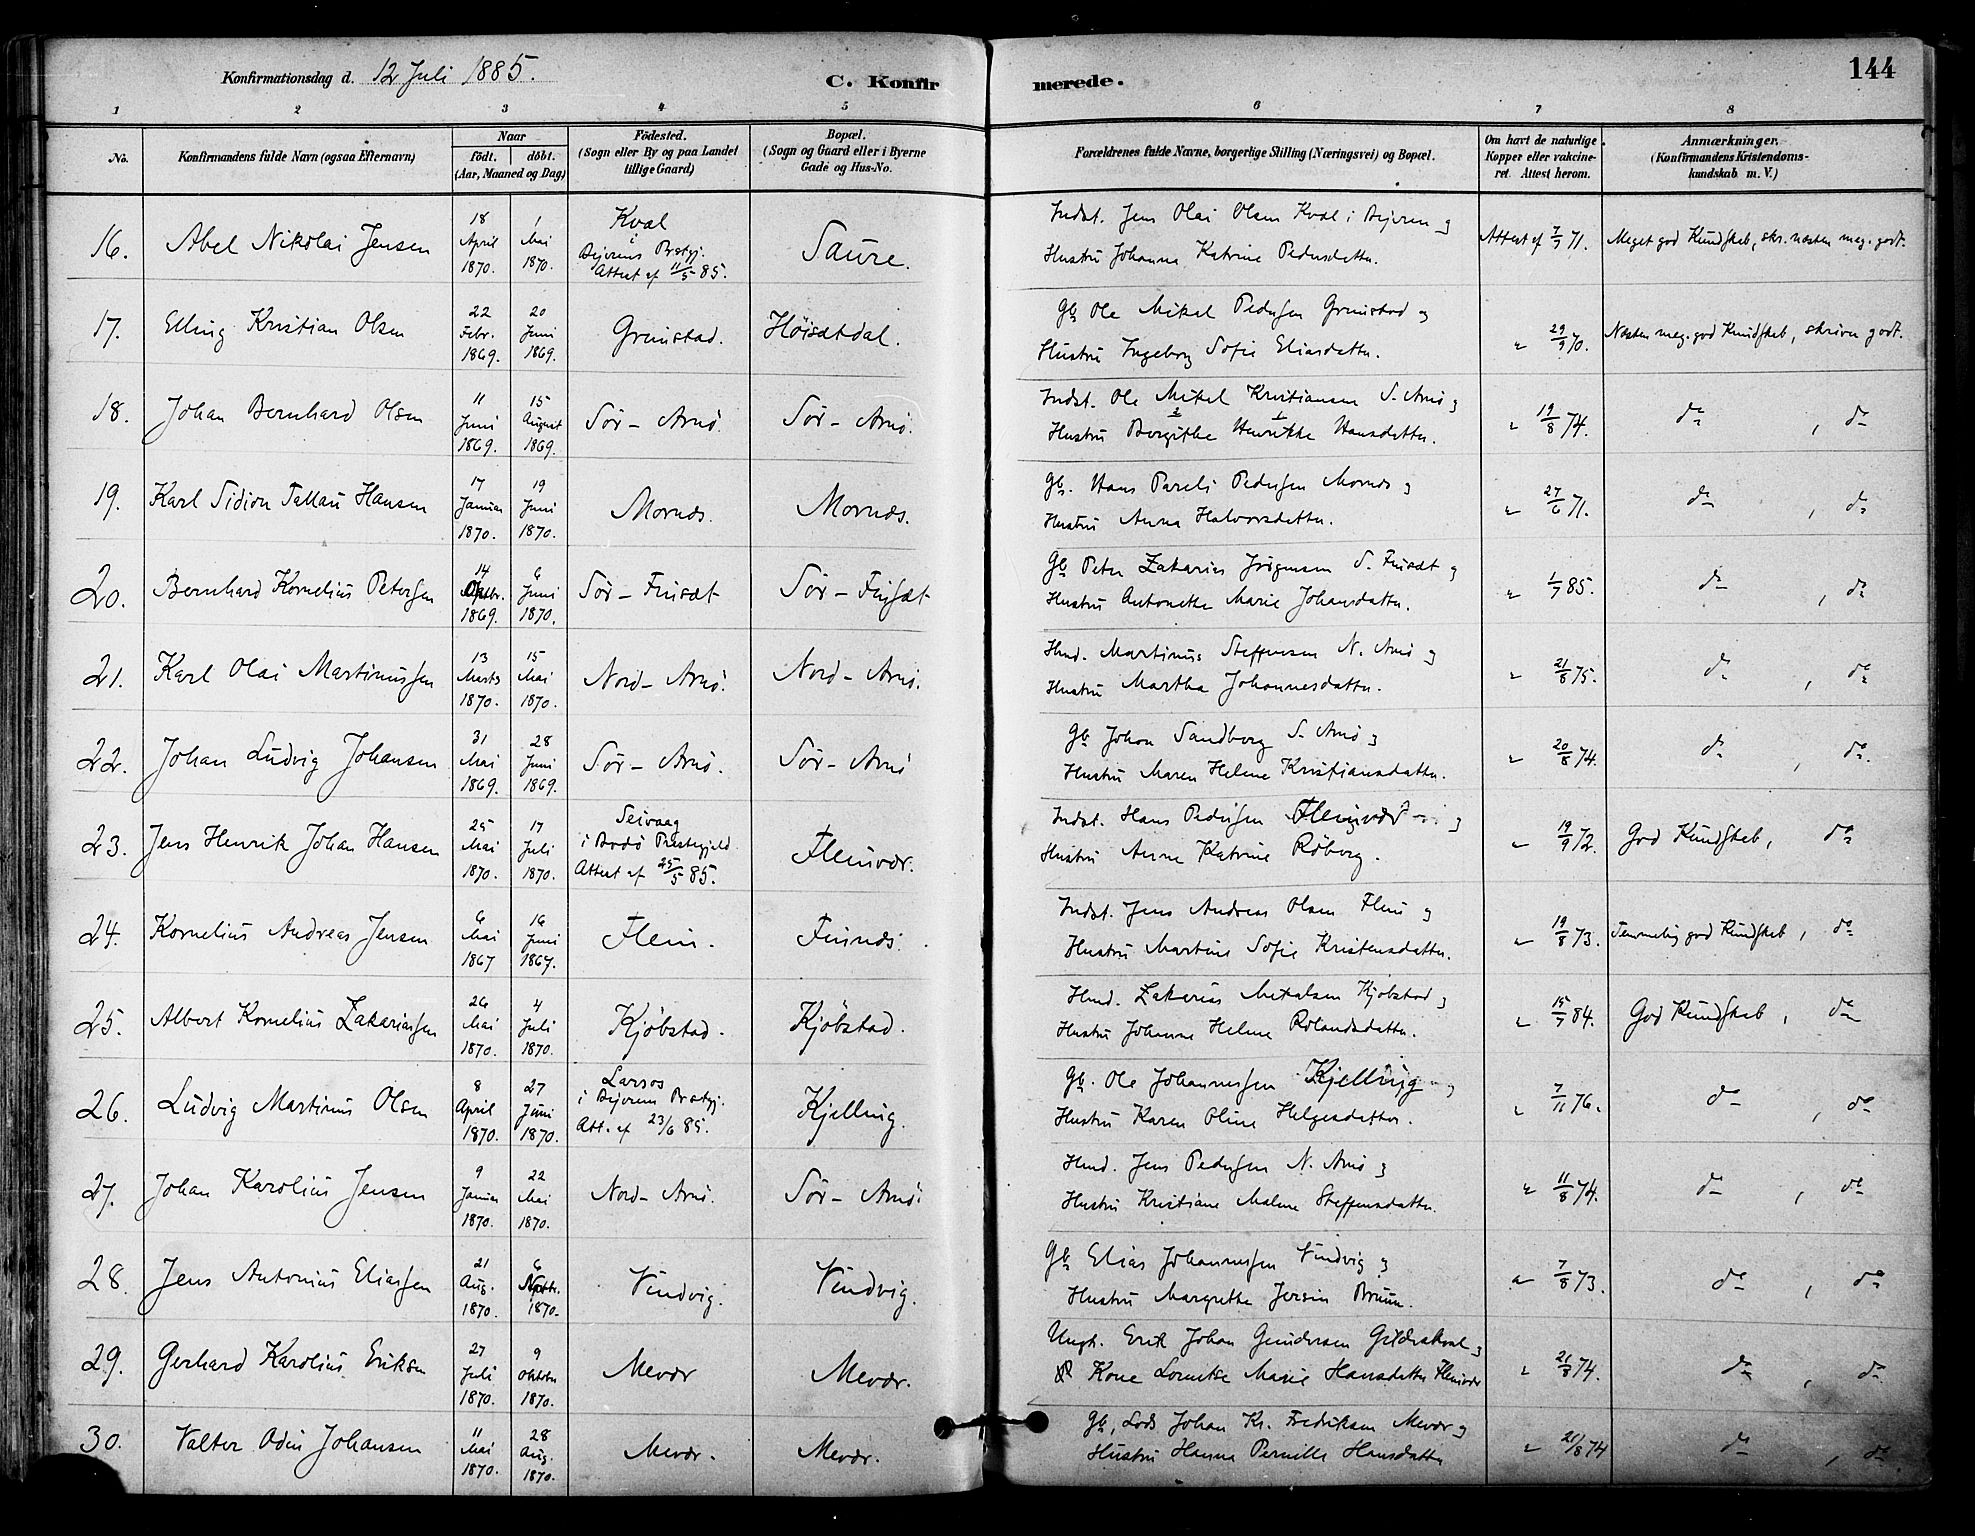 Konfirmationsdag d. 12 Juli 1885.
C. Konfirmerede.
144
1 2 3 4 5 6 7 8
No.
Konfirmandens fulde Navn (ogsaa Efternavn)
Naar
födt. döbt.
(Aar, Maaned og Dag)
Födested.
(Sogn eller By og paa Landet
tillige Gaard)
Bopæl.
(Sogn og Gaard eller i Byerne
Gade og Hus-No.
Forældrenes fulde Navne, borgerlige Stilling (Næringsvei) og Bopæl.
Om havt de naturlige
Kopper eller vakcine-
ret. Attest herom.
Anmærkninger.
(Konfirmandens Kristendoms-
kundskab m. V.)
16. Abel Nikolai Jensen
18 April 1870.
1 Mai 1870.
Kval
i
Bejerens Prstgj.
Attest af 11/5 85.
Saure.
Indst. Jens Olai Olsen Kval i Bejeren og
Hustru Johanna Katrine Pedersdatter.
Attest af 7/7 71.
Meget god Kundskab, skr. næsten meg. godt.
17. Elling Kristian Olsen
22 Febr. 1869.
20 Juni 1869.
Grimstad.
Höisætdal.
Gb Ole Mikal Pedersen Grimstad og
Hustru Ingeborg Sofie Eliasdatter.
" 29/9 70.
Næsten meg. god Kundskab, skriver godt.
18. Johan Bernhard Olsen
11 Juni 1869.
15 August 1869.
Sör-Arnö.
Sör-Arnö.
Indst. Ole Mikal Kristiansen S. Arnö og
2 1
Hustru Bergithe Henrikke Hansdatter.
" 19/8 74.
do , do
19. Karl Sidion Tallau Hansen
17 Januar 1870.
19 Juni 1870.
Mornæs.
Mornæs.
Gb. Hans Pareli Pedersen Mornæs og
Hustru Anna Halvorsdatter.
" 27/6 71.
do , do
20. Bernhard Kornelius Petersen
14 Oktbr. 1869.
6 Juni 1870.
Sör-Finsæt
Sör-Finsæt
Gb Peter Zakarias Jörgensen S. Finsæt og
Hustru Antonette Marie Johansdatter.
" 1/7 85.
do , do
21. Karl Olai Martinussen
13 Marts 1870.
15 Mai 1870.
Nord-Arnö.
Nord-Arnö.
Hmd. Martinus Steffensen N. Arnö og
Hustru Martha Johannesdatter.
" 21/8 75.
do , do
22. Johan Ludvig Johansen
31 Mai 1869.
28 Juni 1869.
Sör-Arnö.
Sör-Arnö
Gb Johan Sandberg S. Arnö og
Hustru Maren Helene Kristiansdatter.
" 20/8 74.
do , do.
23. Jens Henrik Johan Hansen
25 Mai 1870.
17 Juli 1870.
Seivaag
i Bodö Præstegjeld
Attest af 25/5 85.
Fleinvær.
Indst. Hans Pedersen Fleinvær og
Hustru Anne Katrine Röberg.
" 19/9 72.
God Kundskab, do
24. Kornelius Andreas Jensen
6 Mai 1867
16 Juni 1867.
Flein.
Finnæs.
Indst. Jens Andreas Olsen Flein og
Hustru Martine Sofie Kristensdatter.
" 19/8 73.
Temmelig god Kundskab, do
25. Albert Kornelius Zakariassen
26 Mai 1870.
4 Juli 1870.
Kjöbstad.
Kjöbstad.
Hmd. Zakarias Mikalsen Kjöbstad og
Hustru Johanna Helene Rolandsdatter.
" 15/7 84.
God Kundskab, do
26. Ludvig Martinus Olsen
8 April 1870.
27 Juni 1870.
Larsos
i Bejerens Prstgj.
Att. af 23/6 85.
Kjelling.
Gb. Ole Johannessen Kjelling og
Hustru Karen Oline Helgesdatter.
" 7/11 76.
do , do
27. Johan Karolius Jensen
9 Januar 1870.
22 Mai 1870.
Nord-Arnö.
Sör-Arnö.
Hmd. Jens Pedersen N. Arnö og
Hustru Kristiane Malene Steffensdatter.
" 11/8 74.
do , do
28 Jens Antonius Eliassen
21 Aug. 1870
6 1870.
Vindvig.
Vindvig.
Gb Elias Johannessen Vindvig og
Hustru Margrethe Jersin Bruun.
" 7/8 73.
do , do
29. Gerhard Karolius Eriksen
27 Juli 1870.
9 Oktober 1870.
Mevær
Mevær.
Ungk. Erik Johan Gundersen Gildeskaal og
Kone Lornetse Marie Hansdatter Fleinvær
" 21/8 74.
do , do
30. Valter Odin Johansen
11 Mai 1870.
28 Aug. 1870.
Mevær.
Mevær.
Gb, Lods Johan Kr. Fredriksen Mevær og
Hustru Hanna Pernille Hansdatter
" 21/8 74
do , do